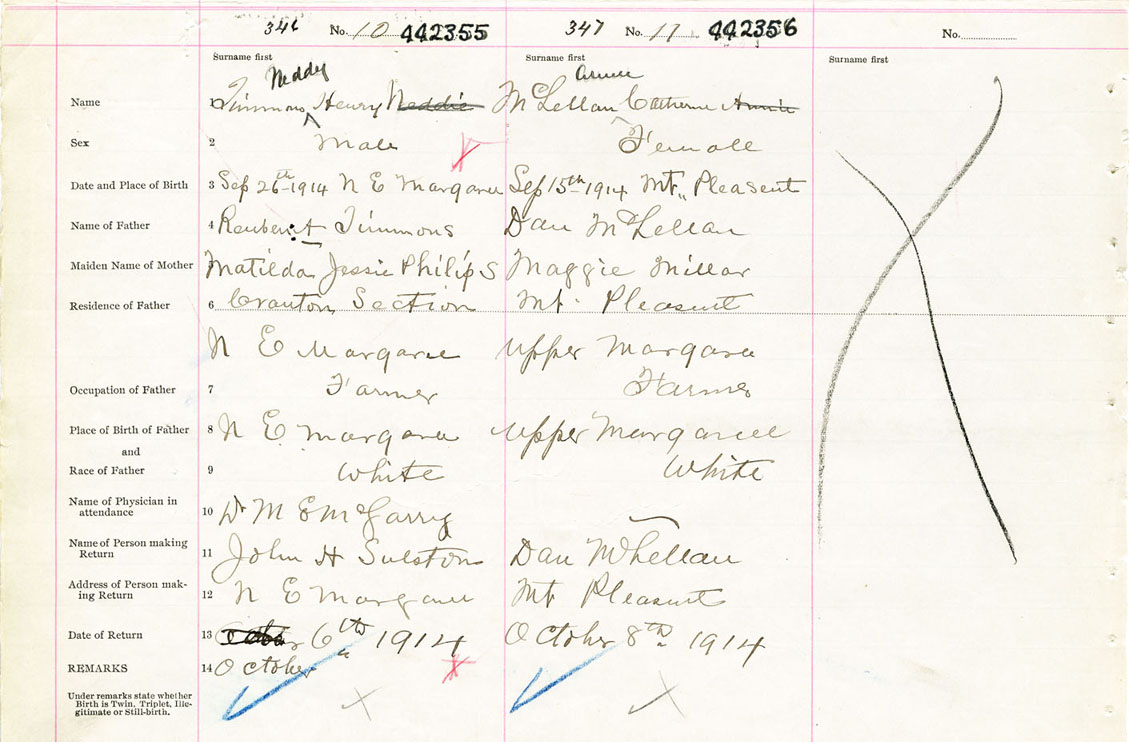 346 No. 10 442355 347 No. 17 442356 No.
Surname first Surname first Surname first
Neddy Annie
Name 1 Timmons Henry Neddie McLellan Catherine Annie
Sex 2 Male Female
Date and Place of Birth 3 Sep 26th 1914 N E Margaree Sep 15th 1914 Mt. Pleasent
Name of Father 4 Reuben A Timmons Dan McLellan
Maiden Name of Mother 5 Matilda Jessie Philips Maggie Millar
Residence of Father 6 Cranton Section Mt. Pleasent
N E Margaree Upper Margaree
Occupation of Father 7 Farmer Farmer
Place of Birth of Father 8 N E Margaree Upper Margaree
and
Race of Father 9 White White
Name of Physician in
attendance 10 Dr M E McGarry
Name of Person making
Return 11 John H Dan McLellan
Address of Person mak-
ing Return 12 N E Margaree Mt Pleasent
Date of Return 13 6th 1914 October 8th 1914
REMARKS 14 October
Under remarks state whether
Birth is Twin, Triplet, Ille-
gitimate or Still-birth.